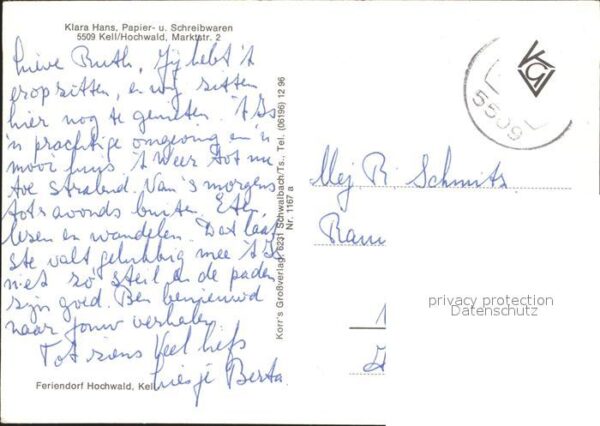 Klara Hans, Papier- u. Schreibwaren
5509 Kell/Hochwald, Marktstr. 2
Lieve Ruth, Jij hebt 't
erop zitten, en wij zitten
hier nog te genieten. 't Is
'n prachtige omgeving en 'n
mooi huis 't Weer tot nu
toe Stralend. Van 's morgens
tot 's avonds buiten. Eten,
lezen en wandelen. Dat laat
ste valt gelukkig mee 't Is
niet zo steil en de paden
zijn goed. Ben benieuwd
naar jouw verhalen
Tot ziens Veel liefs
Liesje Berta
Feriendorf Hochwald, Kell
Korr's Großverlag, 6231 Schwalbach/Ts., Tel. (06196) 12 96
Nr. 1167 a
5509
Mej R. Schmitz
privacy protection
Datenschutz